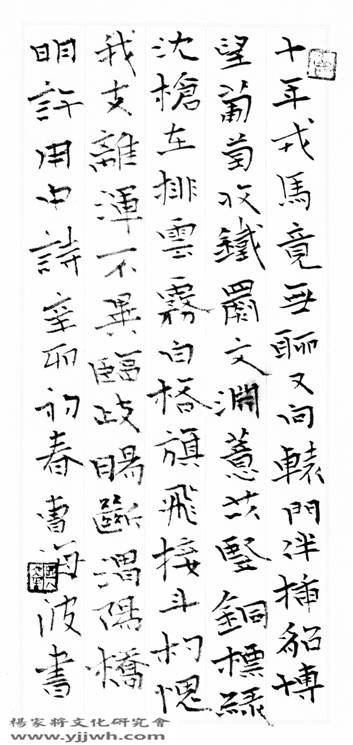 十年戎馬竟無聊又向轅門泮插貂博
望葡萄收鐵罽文淵薏苡豎銅標綠
沈槍在排雲霧白旗飛接斗杓愧
我支離渾不異臨歧腸斷渭陽橋
明許用中詩辛卯初春曹海波書
楊家將文化研究會
www.yjjwh.com